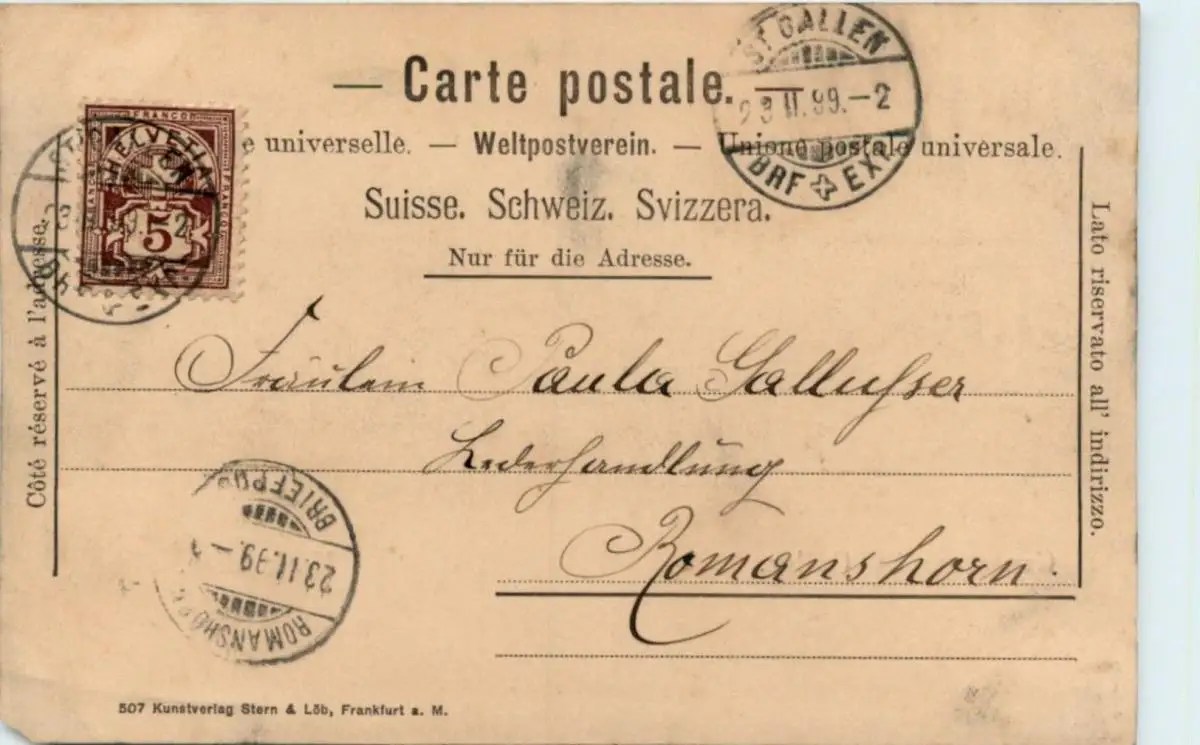 Carte postale.
e universelle. — Weltpostverein. — Unione postale universale.
Suisse. Schweiz. Svizzera.
Nur für die Adresse.
Côté réservé à l'adresse.
Lato riservato all' indirizzo.
FRANCO
HELVETIA
FRANCO
5
ST GALLEN
23 II.99.–2
BRF EXP
Fräulein Paula Gallusser
Lederhandlung
Romanshorn.
BRIEFPOS
23.II.99.–
ROMANSHORN
507 Kunstverlag Stern & Löb, Frankfurt a. M.